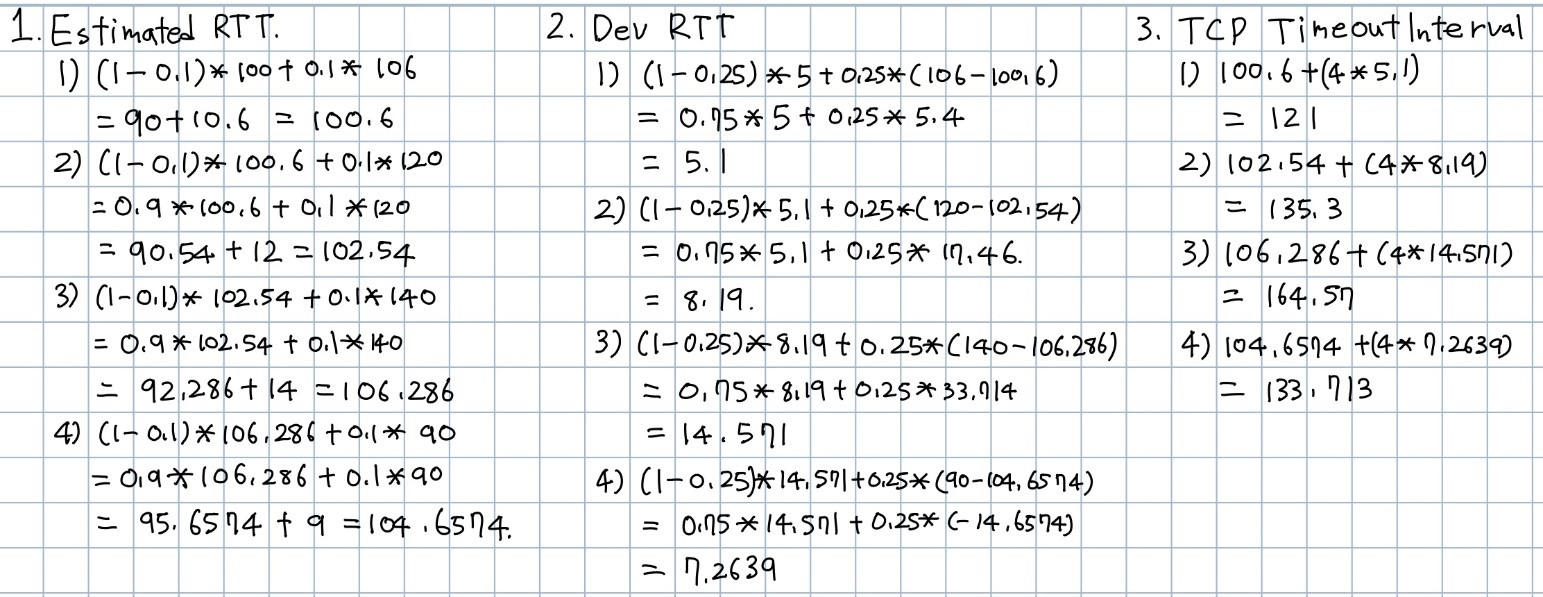 1. Estimated RTT.
1) (1-0.1)*100+0.1*106
=90+10.6 = 100.6
2) (1-0.1)*100.6+0.1*120
=0.9*100.6+0.1*120
=90.54+12=102.54
3) (1-0.1)*102.54+0.1*140
=0.9*102.54+0.1*140
= 92.286+14 =106.286
4) (1-0.1)*106.286+0.1*90
=0.9*106.286+0.1*90
= 95.6574+9 =104.6574.
2. Dev RTT
1) (1-0.25)*5+0.25*(106-100.6)
= 0.75*5+0.25*5.4
= 5.1
2) (1-0.25)*5.1+0.25*(120-102.54)
= 0.75*5.1+0.25*17.46.
= 8.19.
3) (1-0.25)*8.19+0.25*(140-106.286)
= 0.75*8.19+0.25*33.714
= 14.571
4) (1-0.25)*14.571+0.25*(90-104.6574)
= 0.75*14.571+0.25*(-14.6574)
= 7.2639
3. TCP Timeout Interval
1) 100.6+(4*5.1)
= 121
2) 102.54+(4*8.19)
= 135.3
3) 106.286+(4*14.571)
= 164.57
4) 104.6574+(4*7.2639)
= 133.713